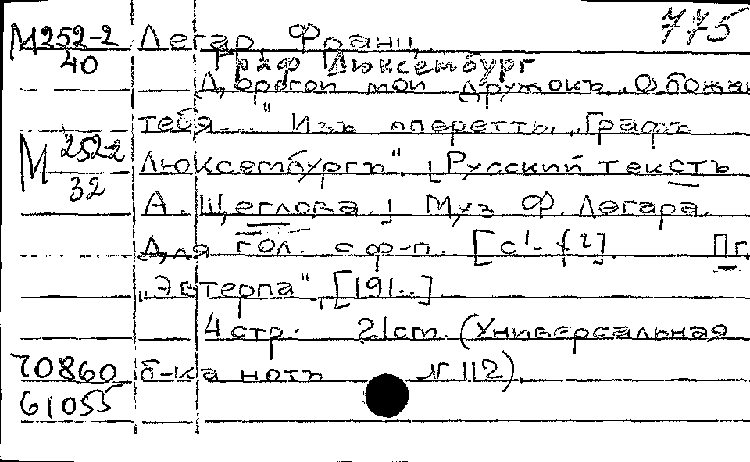 775
М252-2 Легар, Франц.
40 Граф Люксембург
Дорогой мой дружокъ. Обожаю
тебя..." Изъ оперетты „Графъ
М 252-2 Люксембургъ". [Русский текстъ
32
А. Щеглова.] Муз. Ф. Легара.
Для гол. с ф-п. [c¹-f²]. Пг.
„Эвтерпа", [191..]
4 стр. 21 cm. (Универсальная
70860 б-ка нотъ № 112).
61055